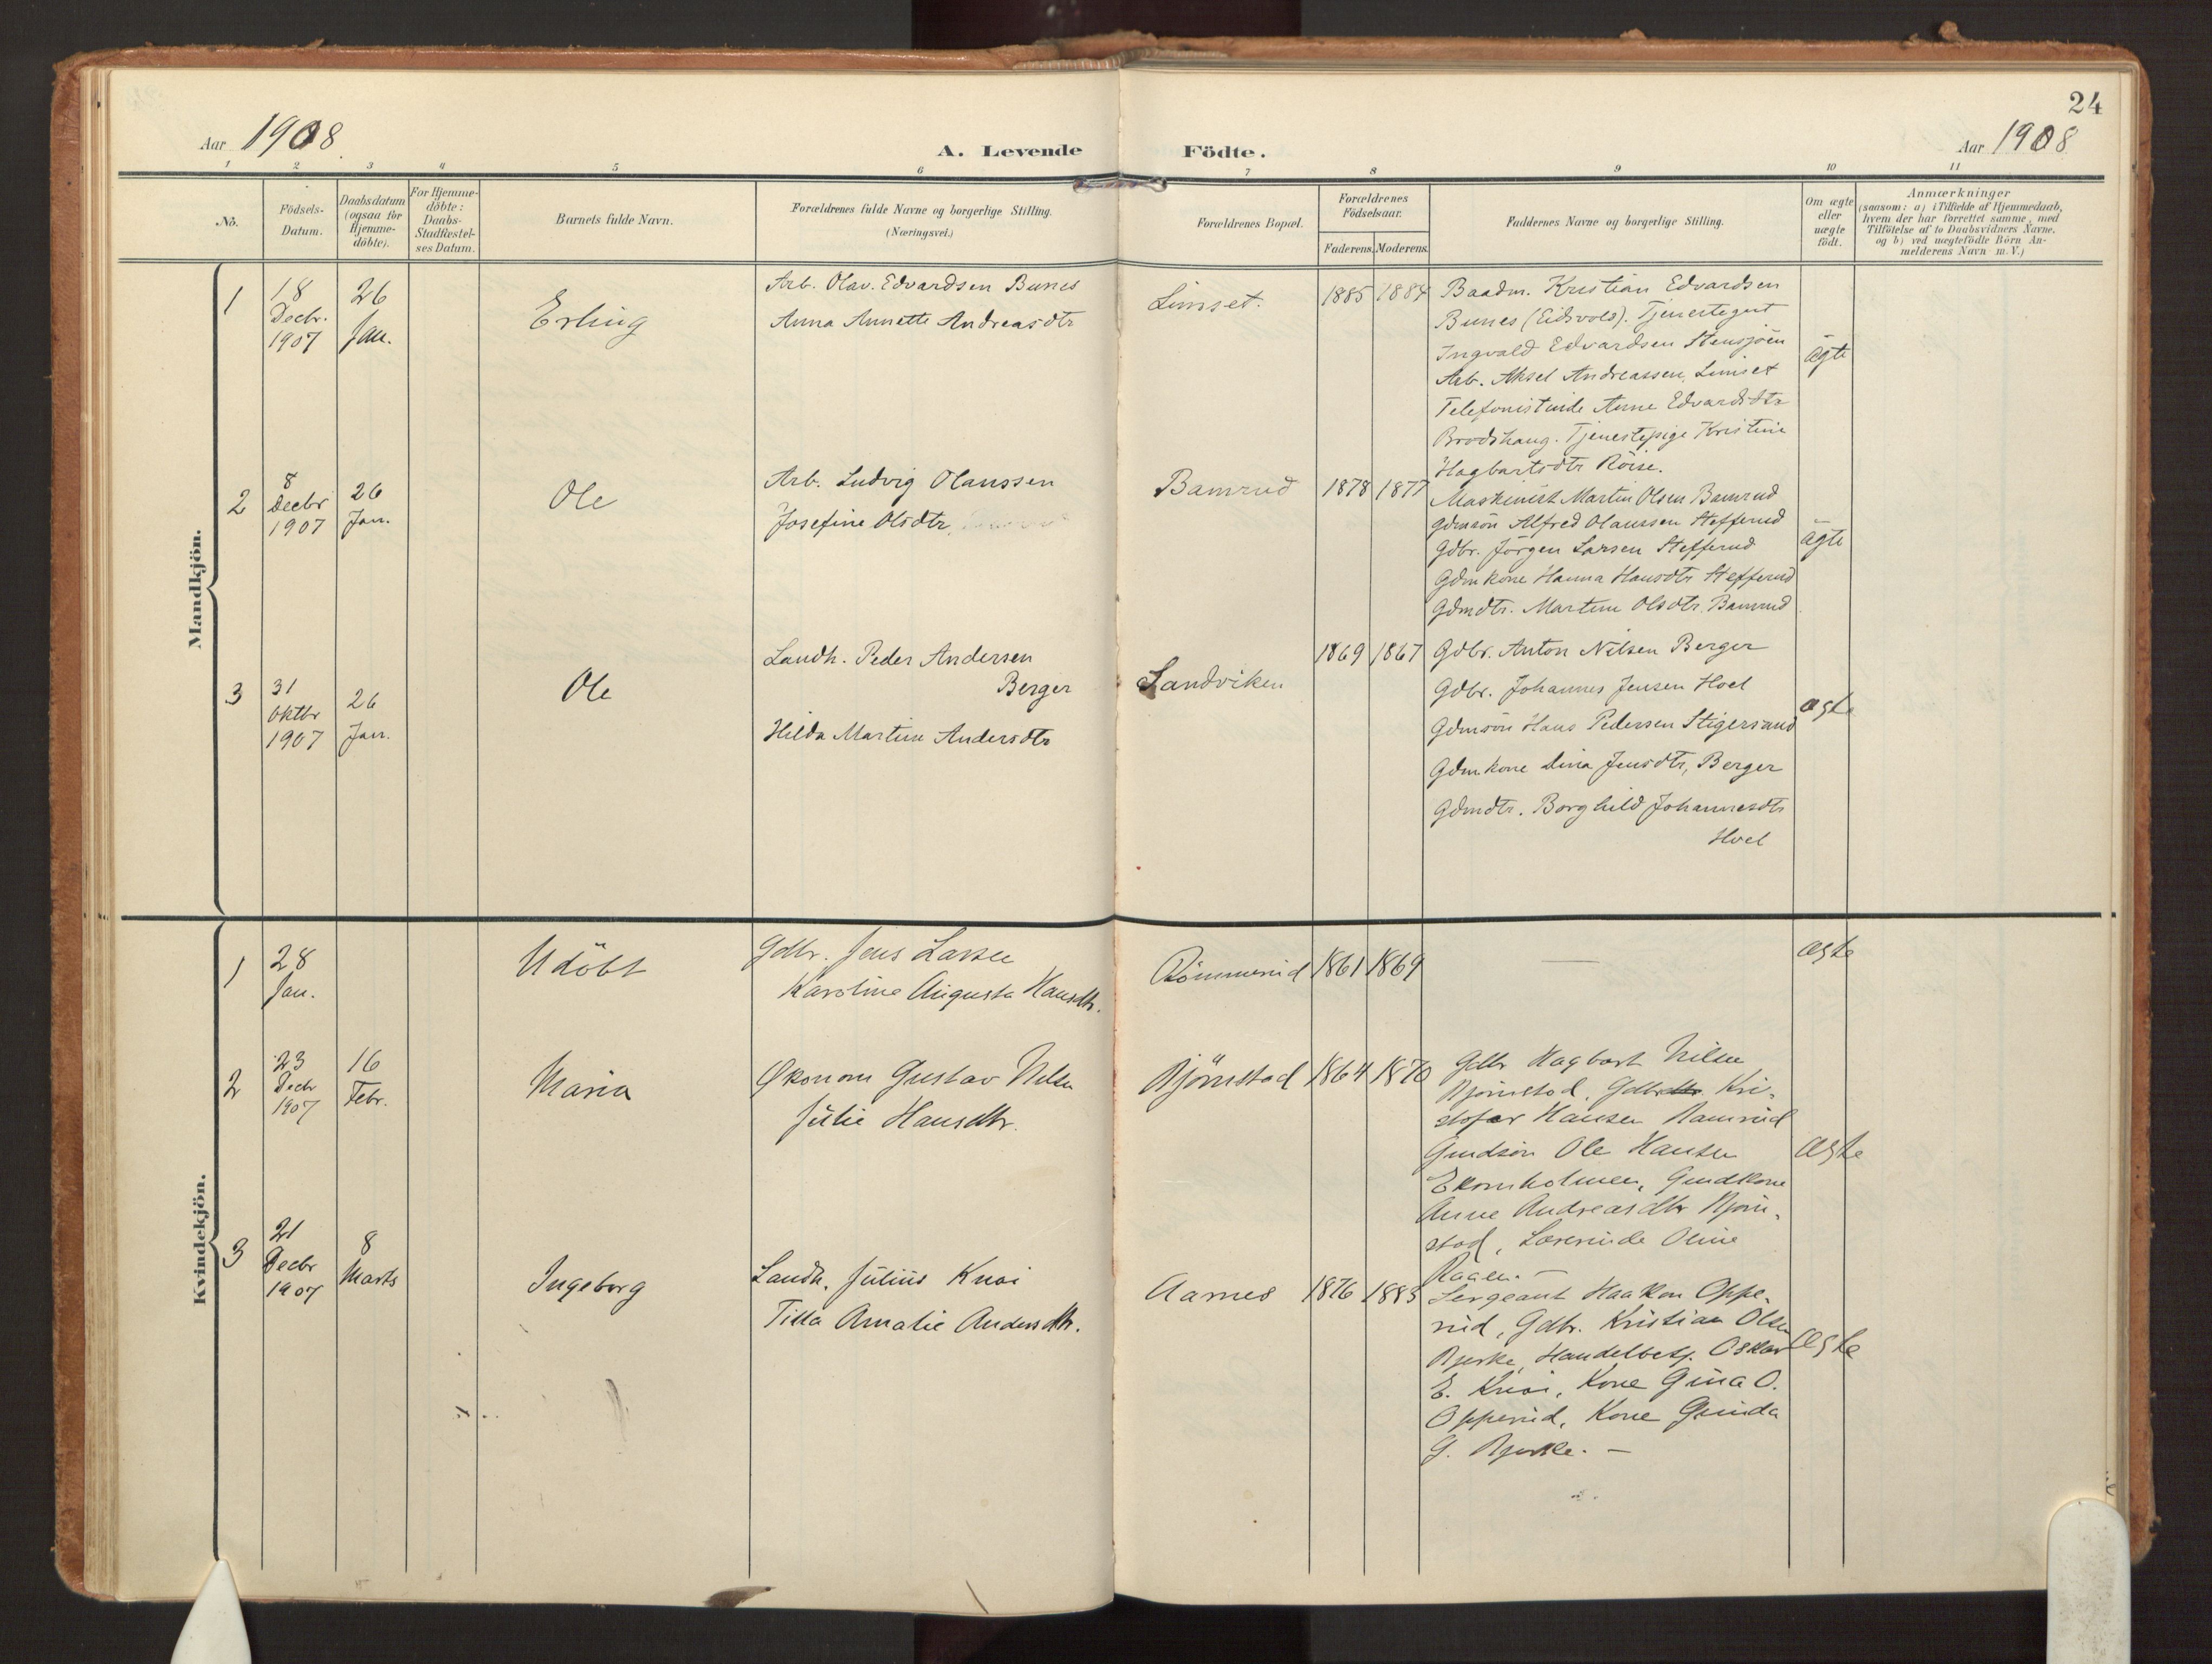 24
Aar 1908
A. Levende Födte.
Aar 1908
1 2 3 4 5 6 7 8 9 10 11
No.
Födsels-
Datum.
Daabsdatum
(ogsaa for
Hjemme-
döbte).
For Hjemme-
döbte:
Daabs-
Stadfæstel-
ses Datum.
Barnets fulde Navn.
Forældrenes fulde Navne og borgerlige Stilling.
(Næringsvei.)
Forældrenes Bopæl.
Forældrenes
Födselsaar.
Faderens. Moderens.
Faddernes Navne og borgerlige Stilling.
Om ægte
eller
uægte
födt.
Anmærkninger
(saasom: a) i Tilfælde af Hjemmedaab,
hvem der har forrettet samme, med
Tilföielse af to Daabsvidners Navne,
og b) ved uægtefödte Börn An-
melderens Navn m. V.)
Mandkjön.
1
18
Decbr.
1907
26
Jan.
Erling
Arb. Olav. Edvardsen Bunes
Anna Annette Andreasdtr
Limset.
1885 1884
Baadm. Kristian Edvardsen
Bunes (Eidsvold). Tjenestegut
Ingvald Edvardsen Stensjöen
Arb. Aksel Andreassen, Limset
Telefonistinde Anne Edvardsdtr
Brodshaug. Tjenestepige Kristine
Hagbartsdtr Röise.
ægte
2
8
Decbr
1907
26
Jan.
Ole
Arb. Ludvig Olaussen
Josefine Olsdtr.
Bamrud
1878 1877
Maskinist Martin Olsen Bamrud
Gdmsön Alfred Olaussen Stefferud
Gdbr. Jörgen Larsen Stefferud
Gdmkone Hanna Hansdtr Stefferud
Gdmdtr. Martine Olsdtr. Bamrud
ægte
3
31
Oktbr
1907
26
Jan.
Ole
Landh. Peder Andersen
Berger
Hilda Martine Andersdtr
Sandviken
1869 1867
Gdbr. Anton Nilsen Berger
Gdbr. Johannes Jensen Hoel
Gdmsön Hans Pedersen Stigersand
Gdmkone Dina Jensdtr, Berger
Gdmdtr. Borghild Johannesdtr
Hoel
ægte
Kvindekjön.
1
28
Jan.
Udöbt
Gdbr. Jens Larsen
Karoline Augusta Hansdtr.
Römmerud
1861 1869
—
ægte
2
23
Decbr
1907
16
Febr.
Maria
Økonom Gustav Nilsen
Julie Hansdtr.
Bjørnstad
1864 1870
Gdbr Hagbart Nilsen
Bjørnstad, Gdbr Kri-
stofer Hansen Ramrud
Gmdsön Ole Hansen
Ekornholmen, Gmdkone
Anne Andreasdtr Bjørn-
stad, Lærerinde Oline
Raaen. —
ægte
3
21
Decbr
1907
8
Marts
Ingeborg
Landh. Julius Knai
Tilla Amalie Andersdtr.
Aarnes
1876 1883
Sergeant Haakon Oppe-
rud, Gdbr. Kristian Olsen
Bjerke, Handelsbetj. Oskar
E. Knai, Kone Gina O.
Opperud, Kone Gunda
G. Bjerke. —
ægte